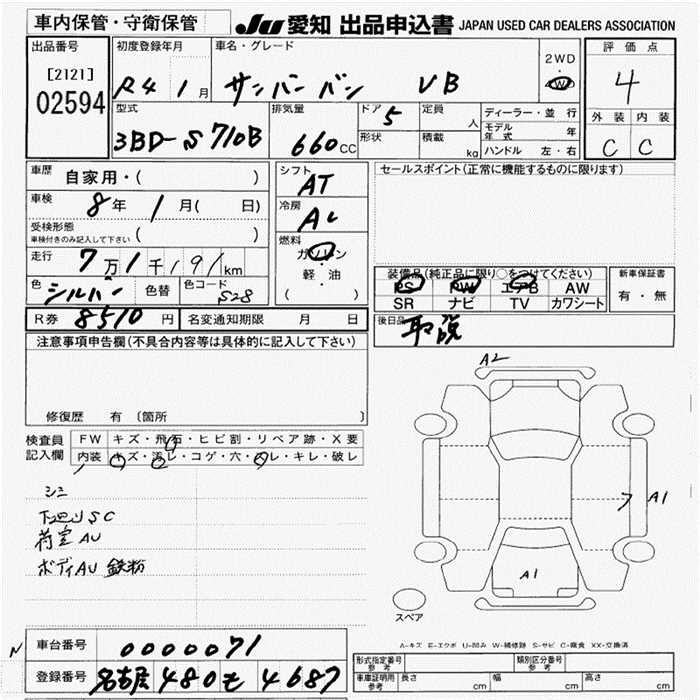 車内保管・守衛保管
JU 愛知 出品申込書 JAPAN USED CAR DEALERS ASSOCIATION
出品番号 初度登録年月 車名・グレード 2WD・4WD 評価点
[2121] R4 1月 サンバーバン VB 4
02594
型式 排気量 ドア 5 定員 人 ディーラー・並行 外装 内装
3BD-S710B 660cc 形状 積載 kg モデル年式 年 C C
ハンドル 左・右
車歴 自家用・( ) シフト AT セールスポイント(正常に機能するものに限ります)
車検 8年 1月( 日) 冷房 AC
受検形態 ( )
車検付きのみ記入して下さい
燃料 ガソリン・軽・油 ( )
走行 7万1千191km
装備品(純正品に限り○をつけてください) 新車保証書
色 シルバー 色替 色コード S28 PS PW エアB AW 有・無
SR ナビ TV カワシート
R券 8510円 名変通知期限 月 日 後日品 取説
注意事項申告欄(不具合内容等は具体的に記入して下さい)
修復歴 有 〔箇所 〕
検査員記入欄 FW キズ・飛石・ヒビ割・リペア跡・X要
内装 キズ・汚レ・コゲ・穴・スレ・キレ・破レ
A2
A1
A1
スペア
シミ
下廻りSC
荷室AU
ボディAU 鉄粉
A-キズ E-エクボ U-凹み W-補修跡 S-サビ C-腐食 XX-交換済
N 車台番号 0000071
登録番号 名古屋 480 そ 4687
形式指定番号 参考 類別区分番号 参考
車庫証明用 参考 長さ cm 幅 cm 高さ cm